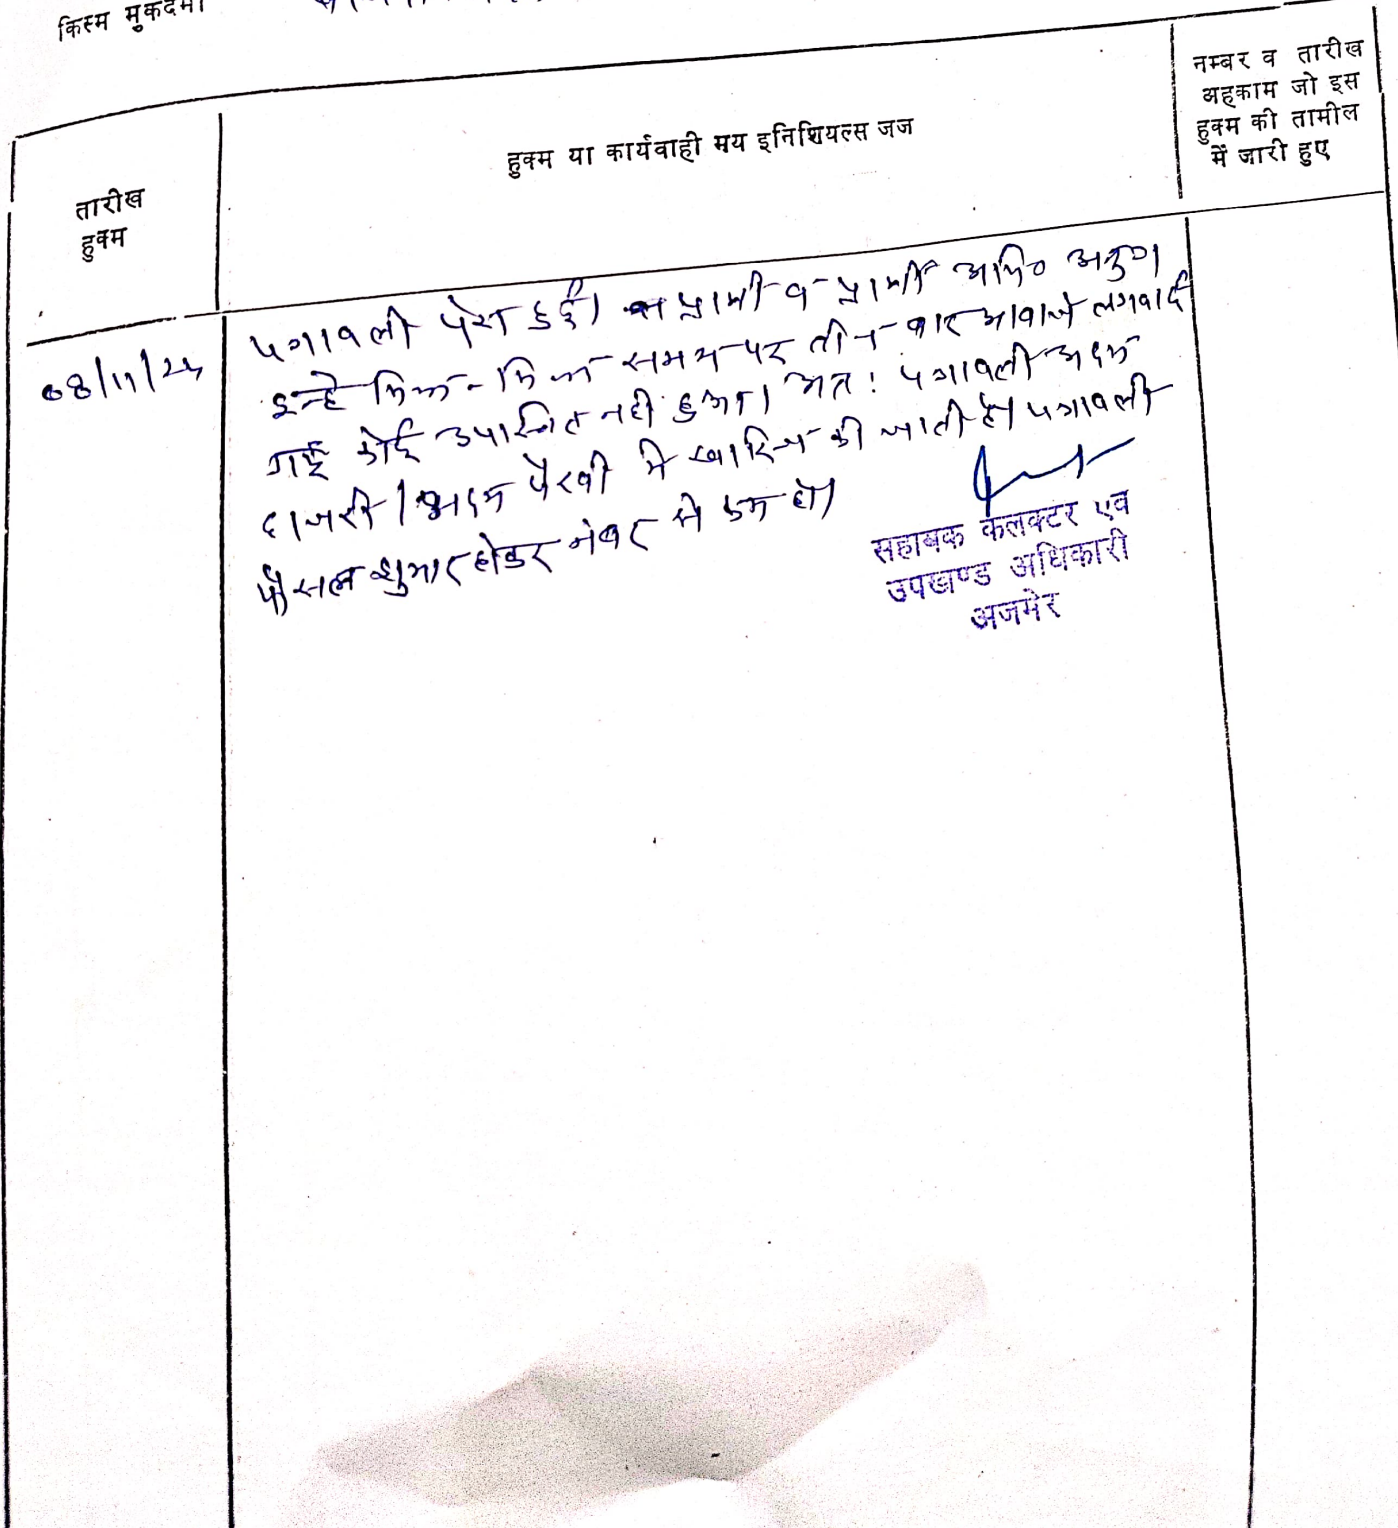 किस्म मुकदमा
तारीख
हुक्म
हुक्म या कार्यवाही मय इनिशियल्स जज
नम्बर व तारीख
अहकाम जो इस
हुक्म की तामील
में जारी हुए
08/11/24
पत्रावली पेश हुई। प्रार्थी व प्रार्थी अभि० अनु०
इन्हे भिन्न-भिन्न समय पर तीन बार आवाजे लगवाई
गई कोई उपास्थित नही हुआ। अत: पत्रावली अदम
हाजरी/अदम पैरवी मे खारिज की जाती है। पत्रावली
फैसल शुमार होकर नंबर से कम हो।
सहायक कलक्टर एवं
उपखण्ड अधिकारी
अजमेर